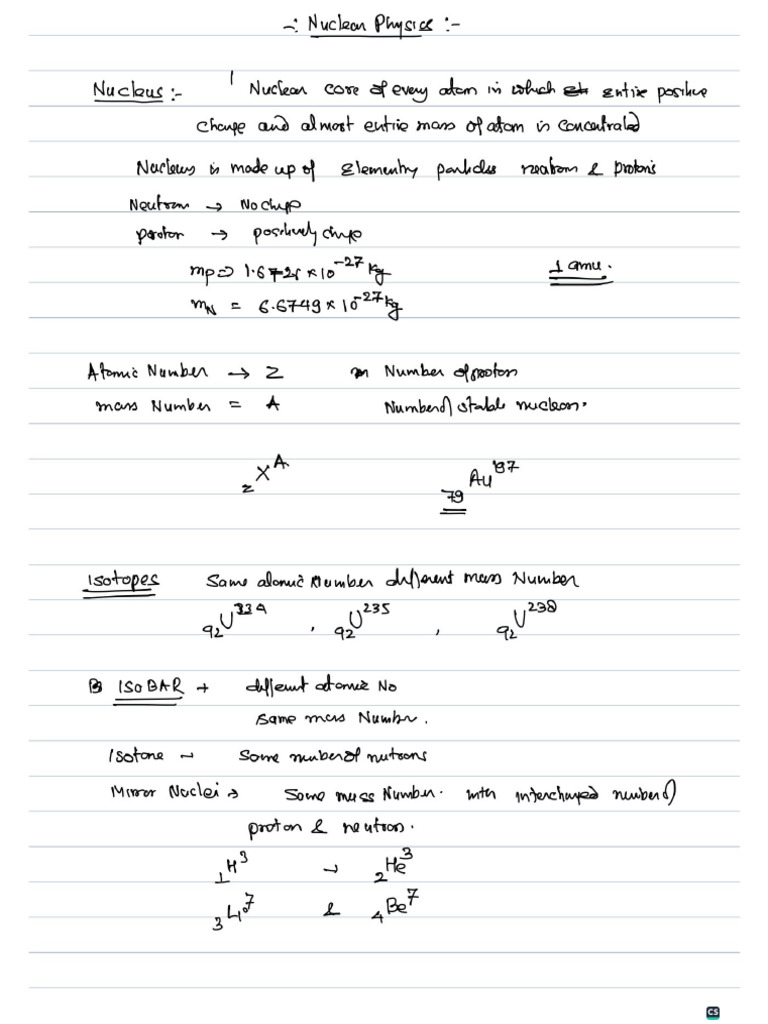 -: Nuclear Physics :-
Nucleus :- Nuclear core of every atom in which entire positive
charge and almost entire mass of atom is concentrated
Nucleus is made up of Elementry particles neutron & proton's
Neutron → No charge
proton → positively charge
mp => 1.6725 × 10⁻²⁷ kg 1 amu.
m_N = 6.6749 × 10⁻²⁷ kg
Atomic Number → Z Number of proton
mass Number = A Number of stable nucleon.
_Z X^A ₇₉Au
Isotopes Same atomic Number different mass Number
₉₂U²³⁴ , ₉₂U²³⁵ , ₉₂U²³⁸
ISOBAR → different atomic No
same mass Number.
Isotone → Same number of nutrons
Mirror Nuclei → Same mass Number. with interchanged number of
proton & neutron.
₁H³ → ₂He³
₃Li⁷ & ₄Be⁷
CS